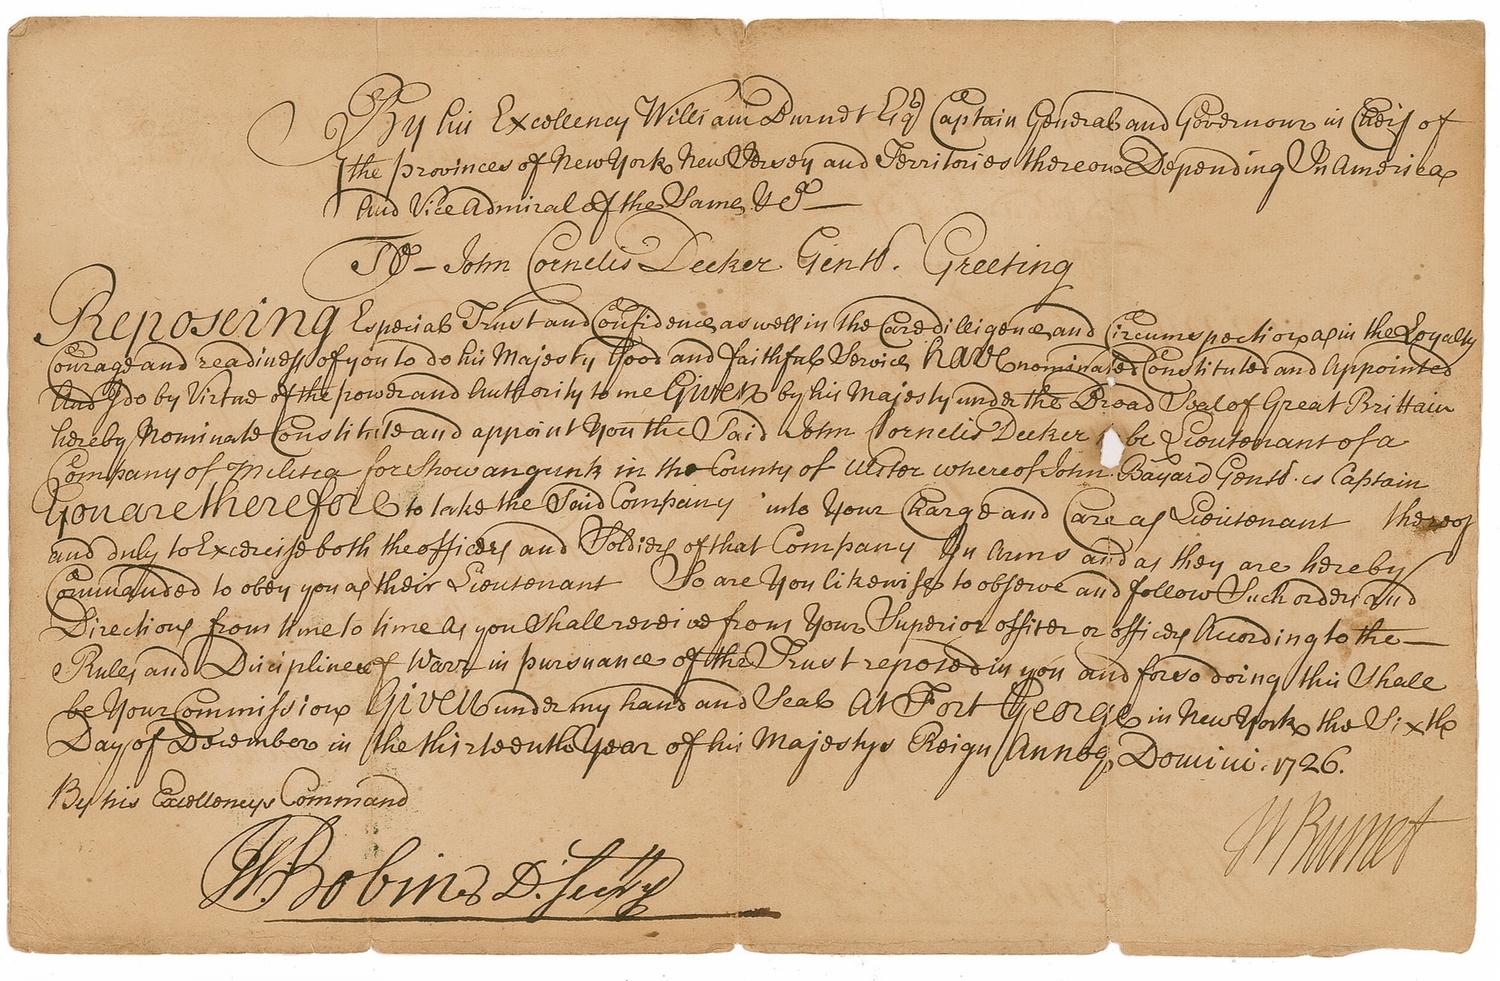 By his Excellency William Burnet Esqr Captain General and Governour in Cheif of
the provinces of New York New Jersey and Territories thereon Depending In America
And Vice Admiral of the Same &c
To - John Cornelis Decker Gentl. Greeting
Reposeing Especial Trust and Confidence as well in the Care dilligence and Circumspection as in the Loyalty
Courage and readiness of you to do his Majesty Good and faithful Service have nominated Constituted and Appointed
And I do by Virtue of the power and Authority to me Given by his Majesty under the Broad Seal of Great Brittain
hereby Nominate Constitute and appoint You the Said John Cornelis Decker be Lieutenant of a
Company of Melitea for Showangunk in the County of Ulster whereof John Bayard Gentl. is Captain
You are therefore to take the Said Company into Your Charge and Care as Lieutenant thereof
and duly to Excercise both the officers and Soldiers of that Company In Arms and as they are hereby
Commanded to obey you as their Lieutenant So are You likewise to observe and follow Such orders and
Directions from time to time as you Shall receive from Your Superior officer or officers According to the
Rules and Discipline of Warr in pursuance of the Trust reposed in you and for so doing this Shall
be Your Commission Given under my hand and Seal At Fort George in New York the Sixth
Day of December in the thirteenth Year of his Majestys Reign Annoq Domini. 1726.
By his Excellencys Command
W Burnet
D. Secry